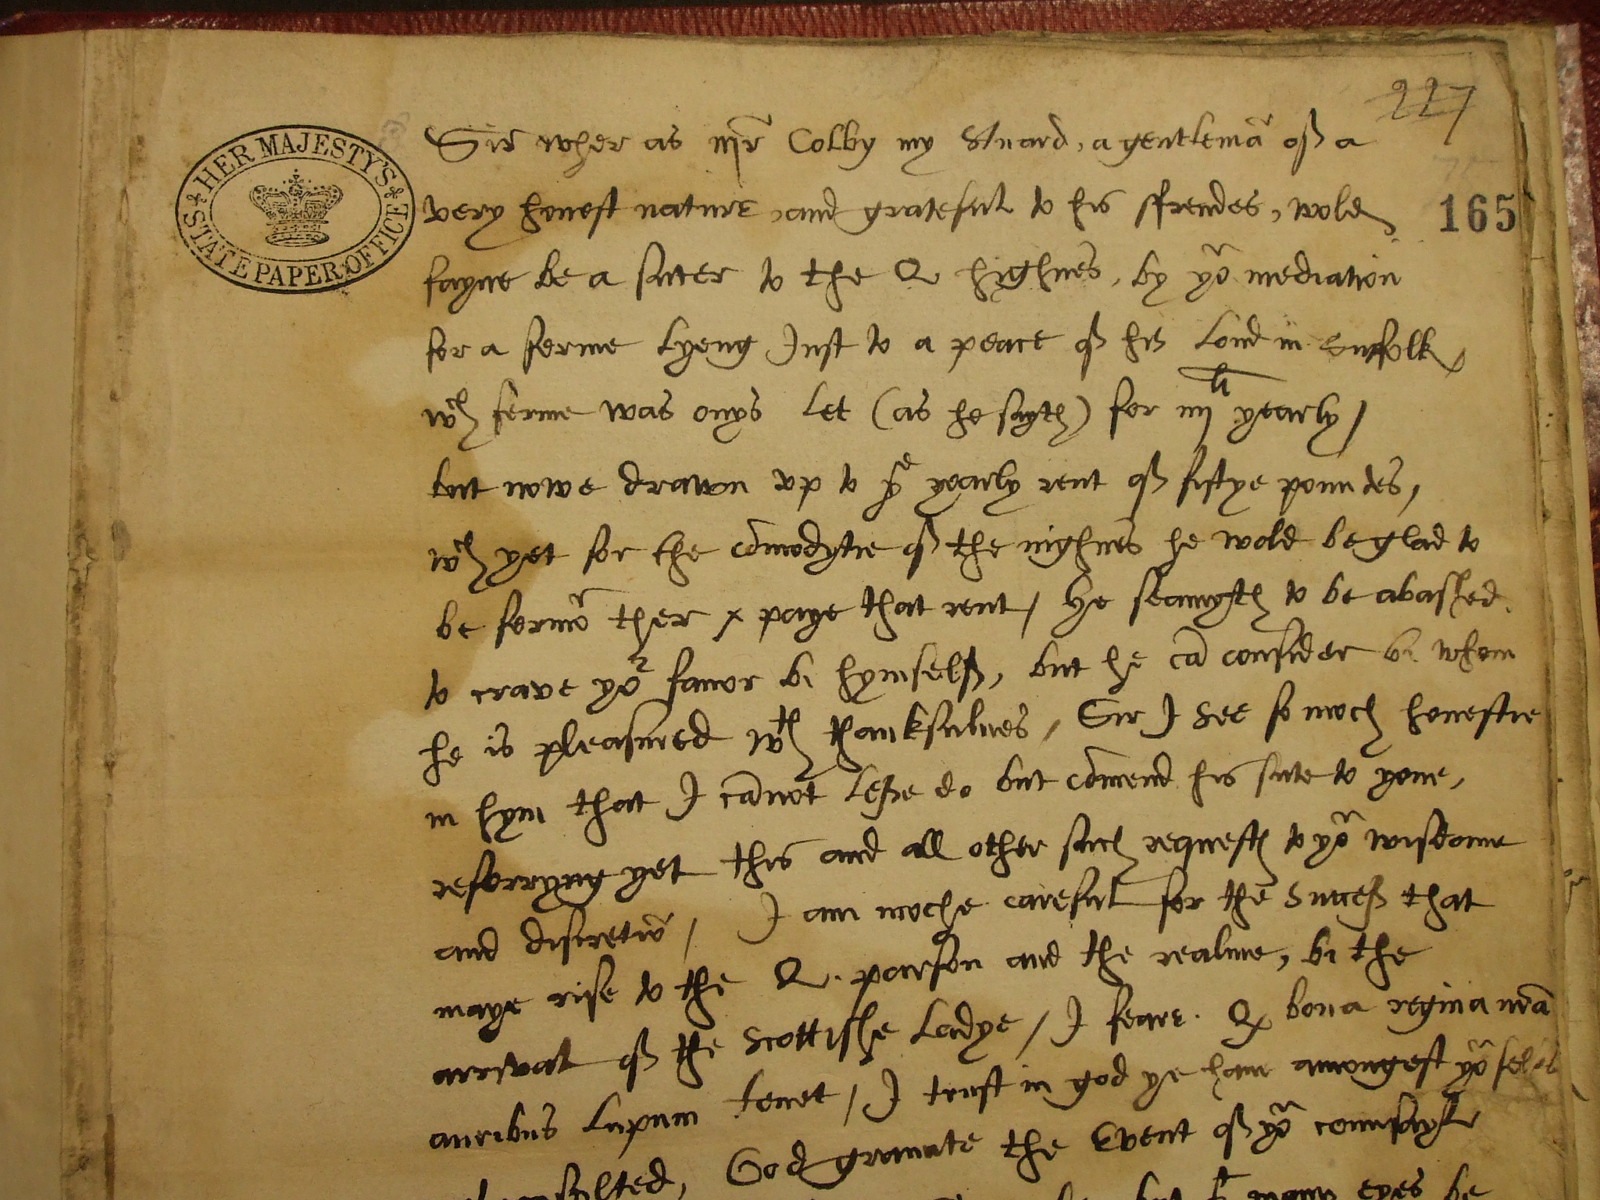 227
HER MAJESTY'S
STATE PAPER OFFICE
165
Sir wher as mr Colby my Stuard, a gentlemā off a
very honest nature, and grateful to his ffrendes, wold
fayne be a suter to the Q highnes, by yor mediation
for a ferme Lyeng Just to a peace off his Lond in Suffolk,
wch ferme was onys Let (as he sayth) for iiijli yearly/
but nowe drawn up to ye yearly rent off fiftye poundes,
wch yet for the cōmodytie off the nighnes he wold be glad to
be fermor ther & paye that rent/ He seamyth to be abashed
to crave yor favor bi hymselff, but he cā consider bi whom
he is pleasured wth thankfulnes/ Sir I see so moch honestie
in hym that I cānot Lesse do but cōmend his sute to yowe,
referryng yet this and all other such requests to yor wisdome
and discretiō/ I am moche careful for the success that
maye rise to the Q. parson and the realme, bi the
arrival off the Scottishe Ladye/ I feare. Q bona regina nrā
auribus Lupum tenet/ I trust in god ye have amongest yor
God graunte the Event off yor
but many eyes be